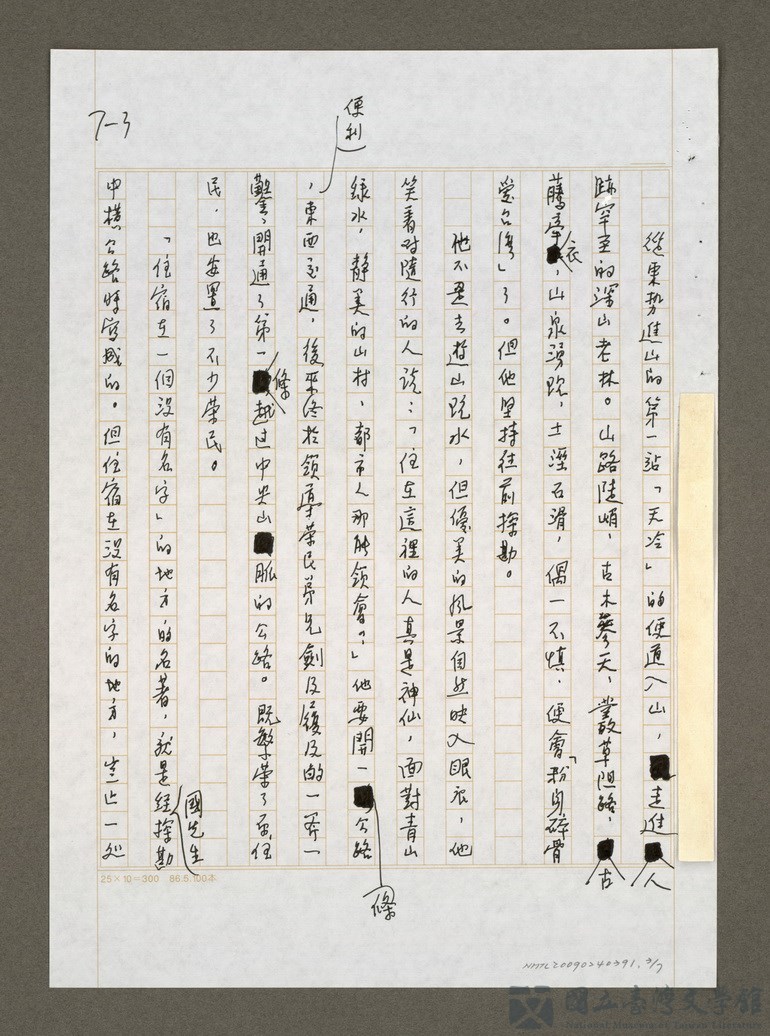 7-3
從東勢進山的第一站「天冷」的便道入山，走進人
跡罕至的深山老林。山路陡峭，古木蔘天，叢草阻路，古
藤牽衣，山泉湧跑，土溼石滑，偶一不慎，便會「粉身碎骨
愛台灣」了。但他堅持往前探勘。
他不是去遊山玩水，但優美的風景自然映入眼底，他
笑着對隨行的人說：「住在這裡的人真是神仙，面對青山
綠水，靜美的山村，都市人那能領會？」他要開一條公路
便利
，東西交通，後來終於領導榮民弟兄劍及履及的一斧一
鑿，開通了第一條越過中央山脈的公路。既繁榮了原住
民，也安置了不少榮民。
「住宿在一個沒有名字」的地方的名著，就是經國先生探勘
中橫公路時寫成的。但住宿在沒有名字的地方，豈止一處
25×10=300 86.5.100本
NMTL20090240391. 3/7
國立臺灣文學館
National Museum of Taiwan Literature